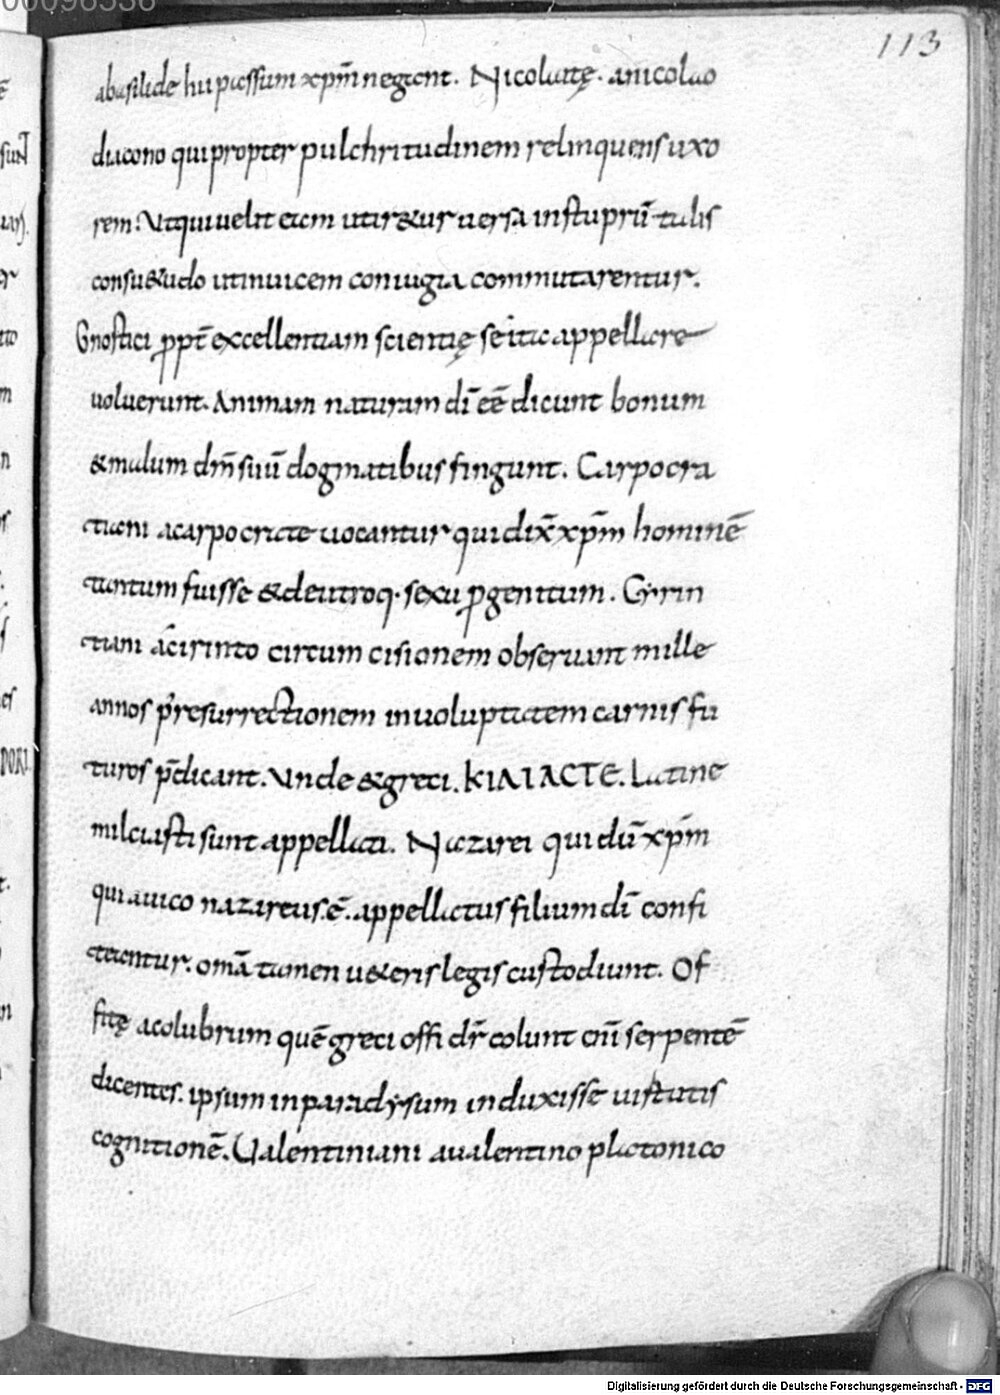 00096536
113
abasilide hii passum xp̄m negant. Nicolaitę. anicolao
diacono qui propter pulchritudinem relinquens uxo
rem. Ut qui uellt eam uter&ur uersa instuprū talis
consu&udo utinuicem coniugia commutarentur.
Gnostici ꝓpt̄ excellentiam scientię se ita appellare
uoluerunt. Animam naturam dī eē dicunt bonum
& malum dm̄ suiū dogmatibus fingunt. Carpocra
tiani acarpocrate uocantur qui dix̄ xp̄m hominē
tantum fuisse & deutroq· sexu ꝓgenitum. Cyrin
tiani acirinto circumcisionem obseruant mille
annos p̄ resurrectionem inuoluptatem carnis fu
turos p̄dicant. Unde & greci. KIAIACTE. Latine
milciasti sunt appellati. Nazarei qui dū xp̄m
qui auico nazareus. ē. appellatus filium dī confi
teantur. omā tamen u&eris legis custodiunt. Of
fitę acolubrum quē greci offi dr̄ colunt eni serpentē
dicentes. ipsum inparadysum induxisse uistutis
cognitionē. Ualentiniani aualentino platonico
Digitalisierung gefördert durch die Deutsche Forschungsgemeinschaft - DFG